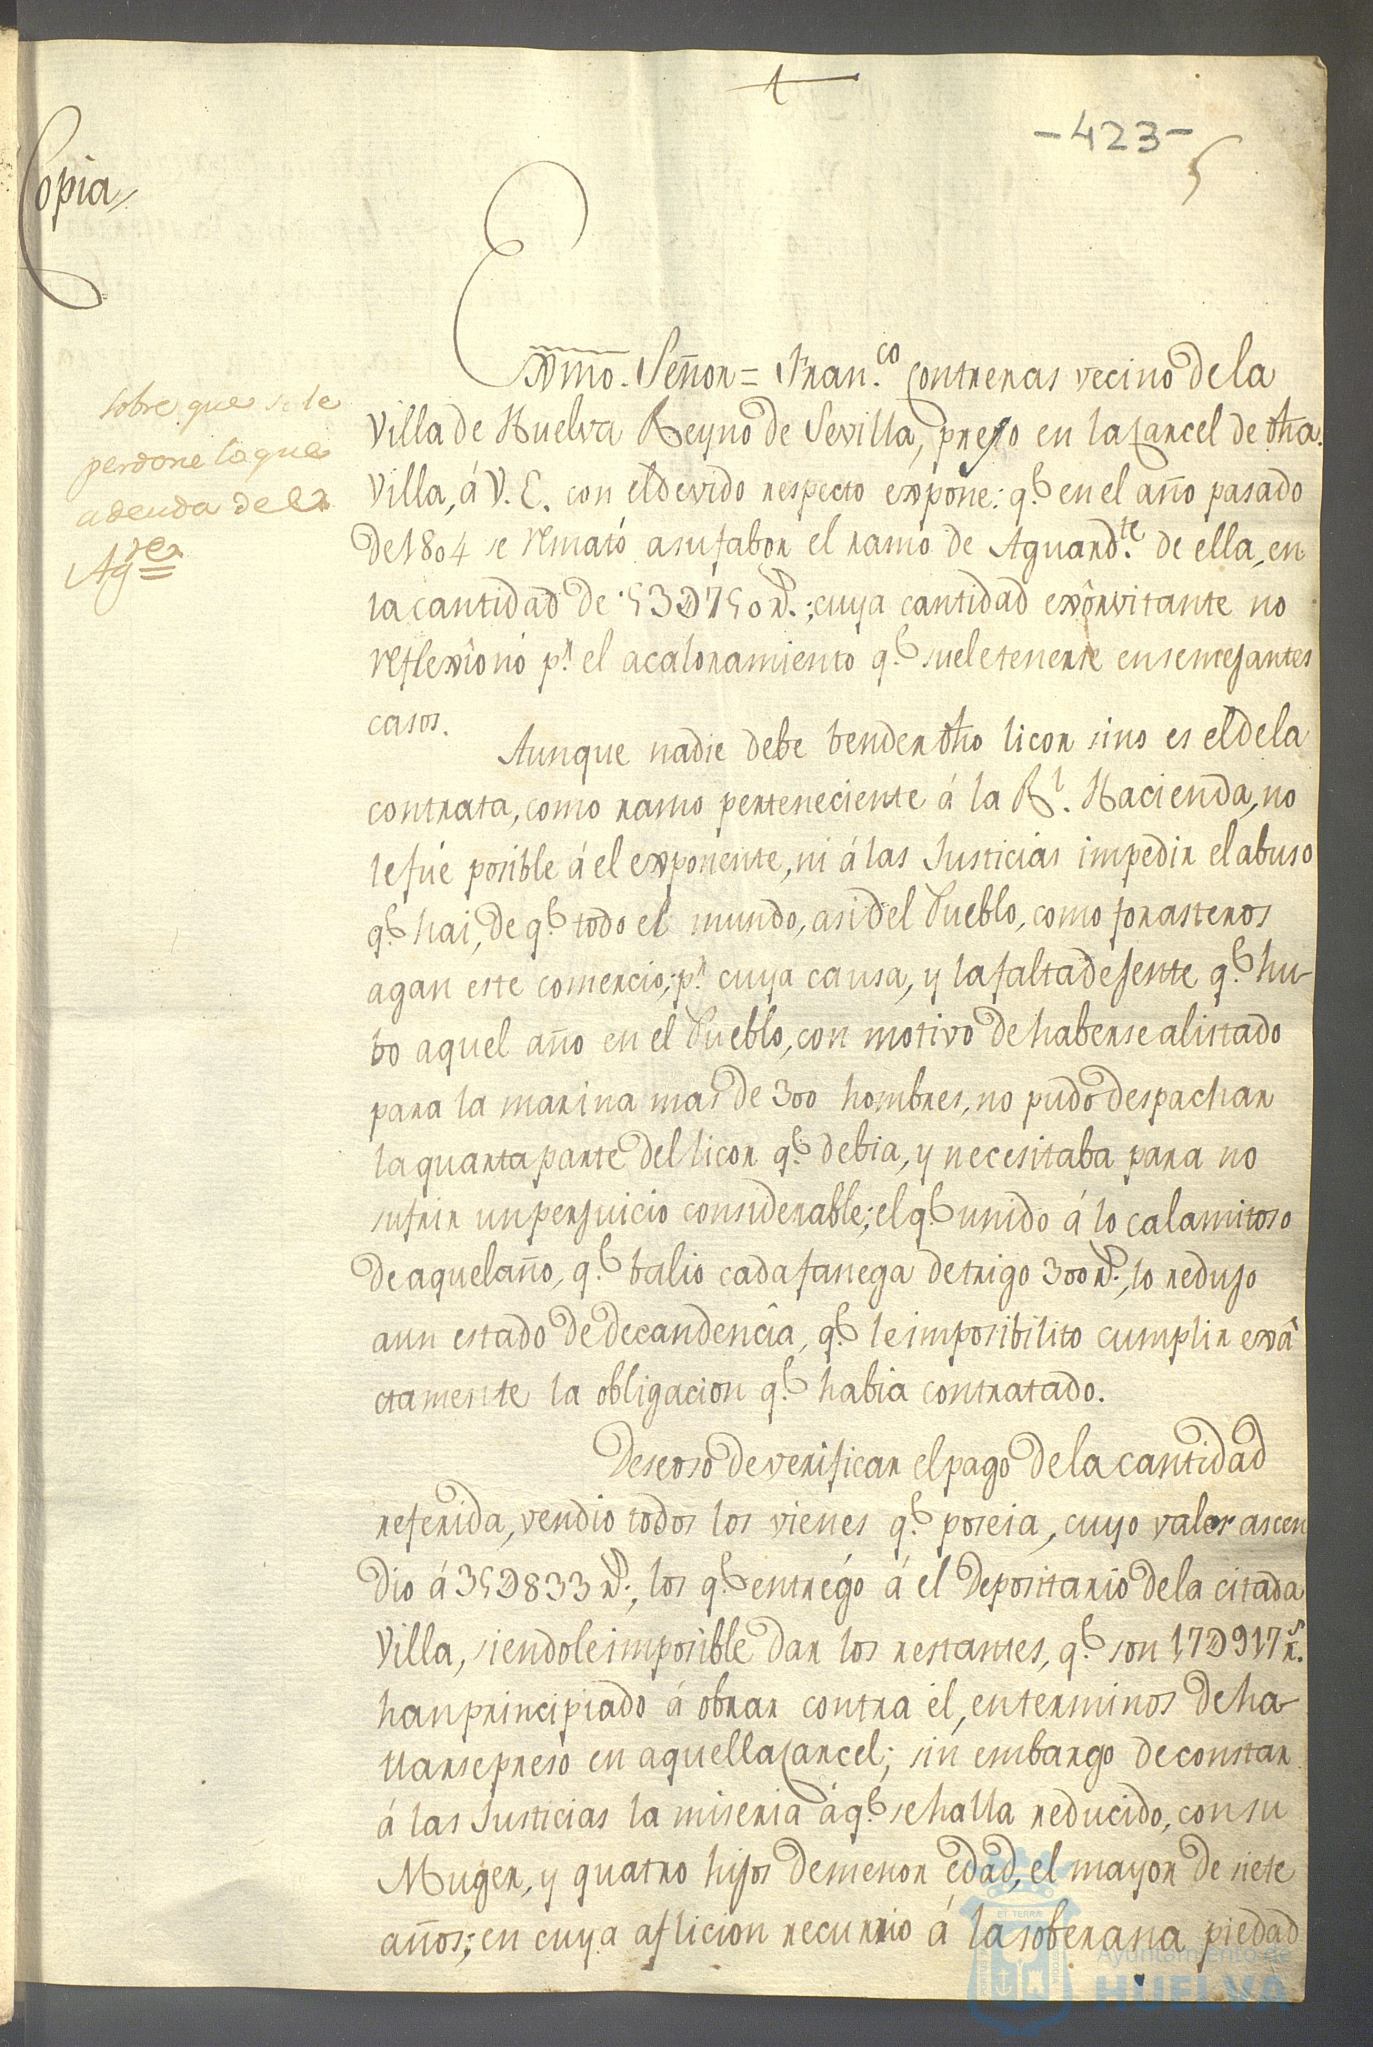 -423-
Copia
sobre que se le
perdone lo que
adeuda del
Ag.te
Exmo. Señor = Fran.co Contreras vecino de la
Villa de Huelva Reyno de Sevilla, preso en la Carcel de dha.
Villa, á V. E. con el devido respecto expone: q.e en el año pasado
de 1804 se remató a su fabor el ramo de Aguard.te de ella, en
la cantidad de 53D750 r.s; cuya cantidad exôrvitante no
reflexîonó p.r el acaloramiento q.e suele tenerse en semejantes
casos.
Aunque nadie debe bender dho licor sino es el de la
contrata, como ramo perteneciente á la R.l Hacienda, no
le fué posible á el exponente, ni á las Justicias impedir el abuso
q.e hai, de q.e todo el mundo, asi del Pueblo, como forasteros
agan este comercio; p.r cuya causa, y la falta de jente q.e hu-
bo aquel año en el Pueblo, con motivo de haberse alistado
para la marina mas de 300 hombres, no pudo despachar
la quarta parte del licor q.e debia, y necesitaba para no
sufrir un perjuicio considerable; el q.e unido á lo calamitoso
de aquel año, q.e balio cada fanega de trigo 300 r.s, lo redujo
a un estado de decandencîa, q.e le imposibilito cumplir exâ
ctamente la obligacion q.e habia contratado.
Deseoso de verificar el pago de la cantidad
referida, vendio todos los vienes q.e poseia, cuyo valor ascen
dio á 35D833 r.s, los q.e entregó á el Depositario de la citada
Villa, siendole imposible dar los restantes, q.e son 17D917 r.s
han principiado á obrar contra él, en terminos de ha-
llarse preso en aquella Carcel; sin embargo de constar
á las Justicias la miseria á q.e se halla reducido, con su
Muger, y quatro hijos de menor edad, el mayor de siete
años; en cuya aflicion recurrio á la soberana piedad
Ayuntamiento de
HUELVA